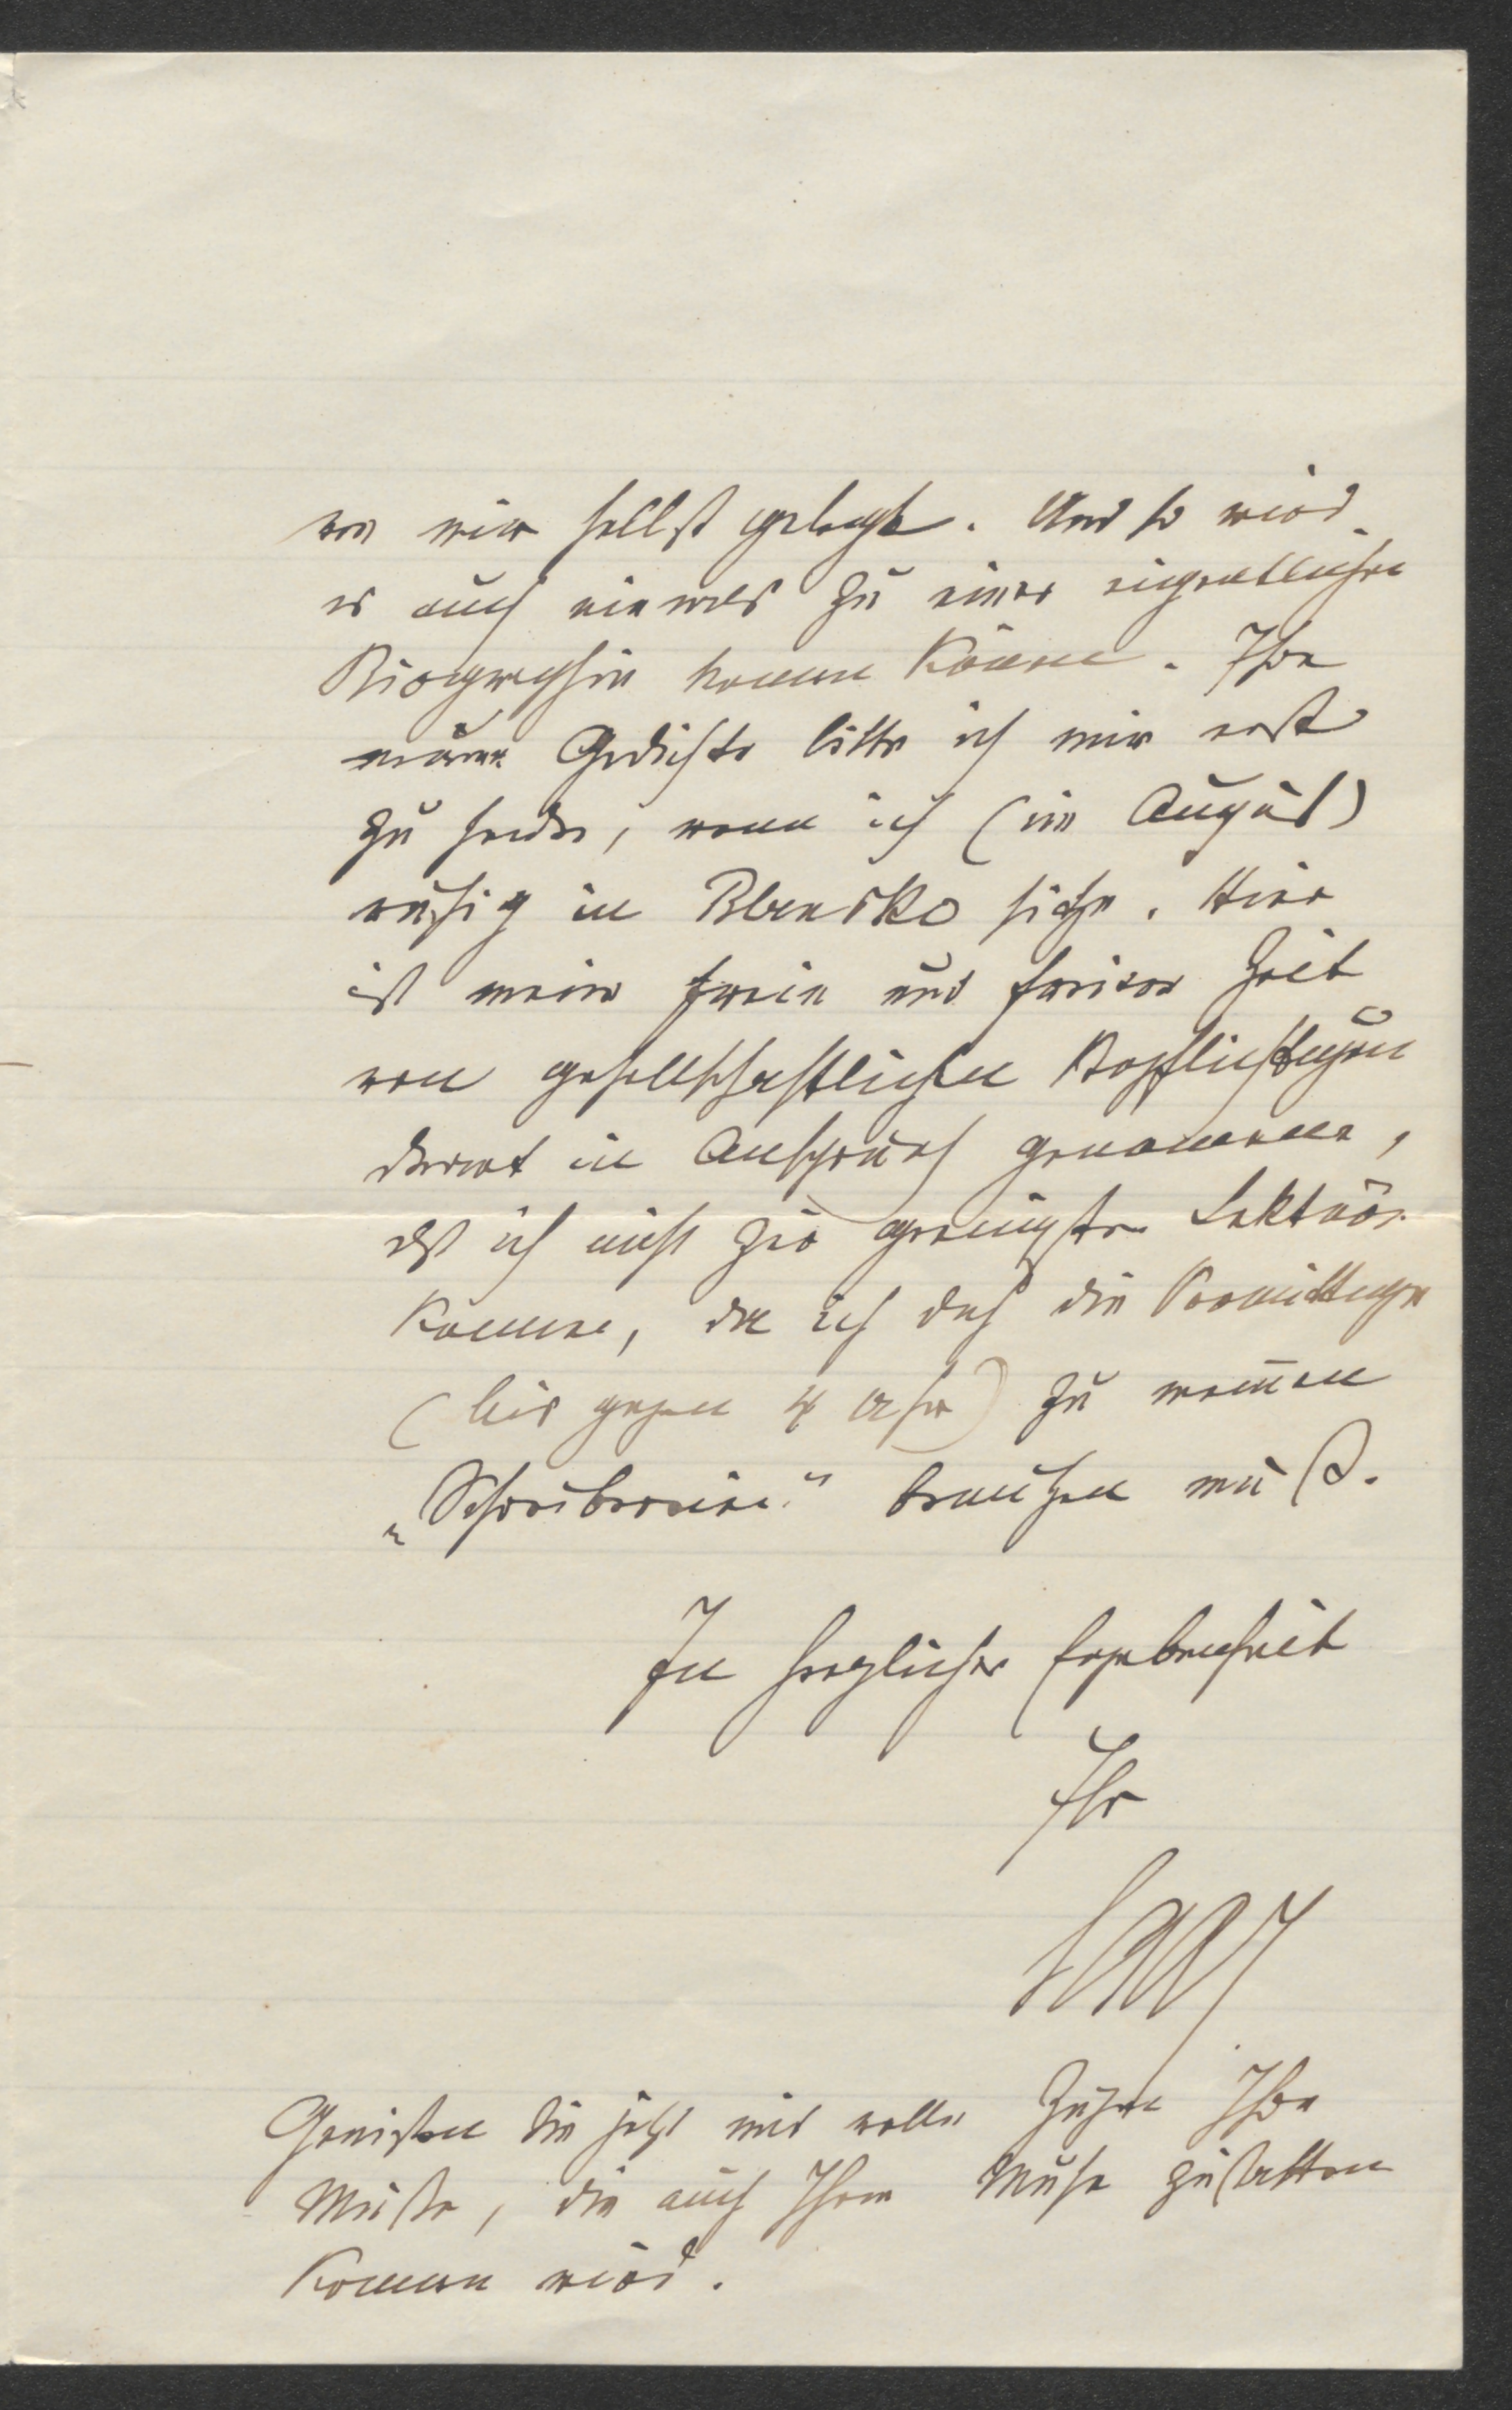 von mir selbst gelegt. Und so wird
es auch niemals zu einer eigentlichen
Biographie kommen können. Ihre
neuen Gedichte bitte ich mir erst
zu senden, wenn ich (im August)
ruhig in Blansko sitze. Hier
ist meine freie und freiere Zeit
von gesellschaftlichen Verpflichtungen
derart in Anspruch genommen,
daß ich nicht zur geringsten Lektüre
komme, da ich doch die Vormittage
(bis gegen 4 Uhr) zu meinen
„Schreibereien" benützen muß.
In herzlicher Ergebenheit
Ihr
Saar
Genießen Sie jetzt mit vollen Zügen Ihre
Muße, die auch Ihrer Muse zustatten
kommen wird.